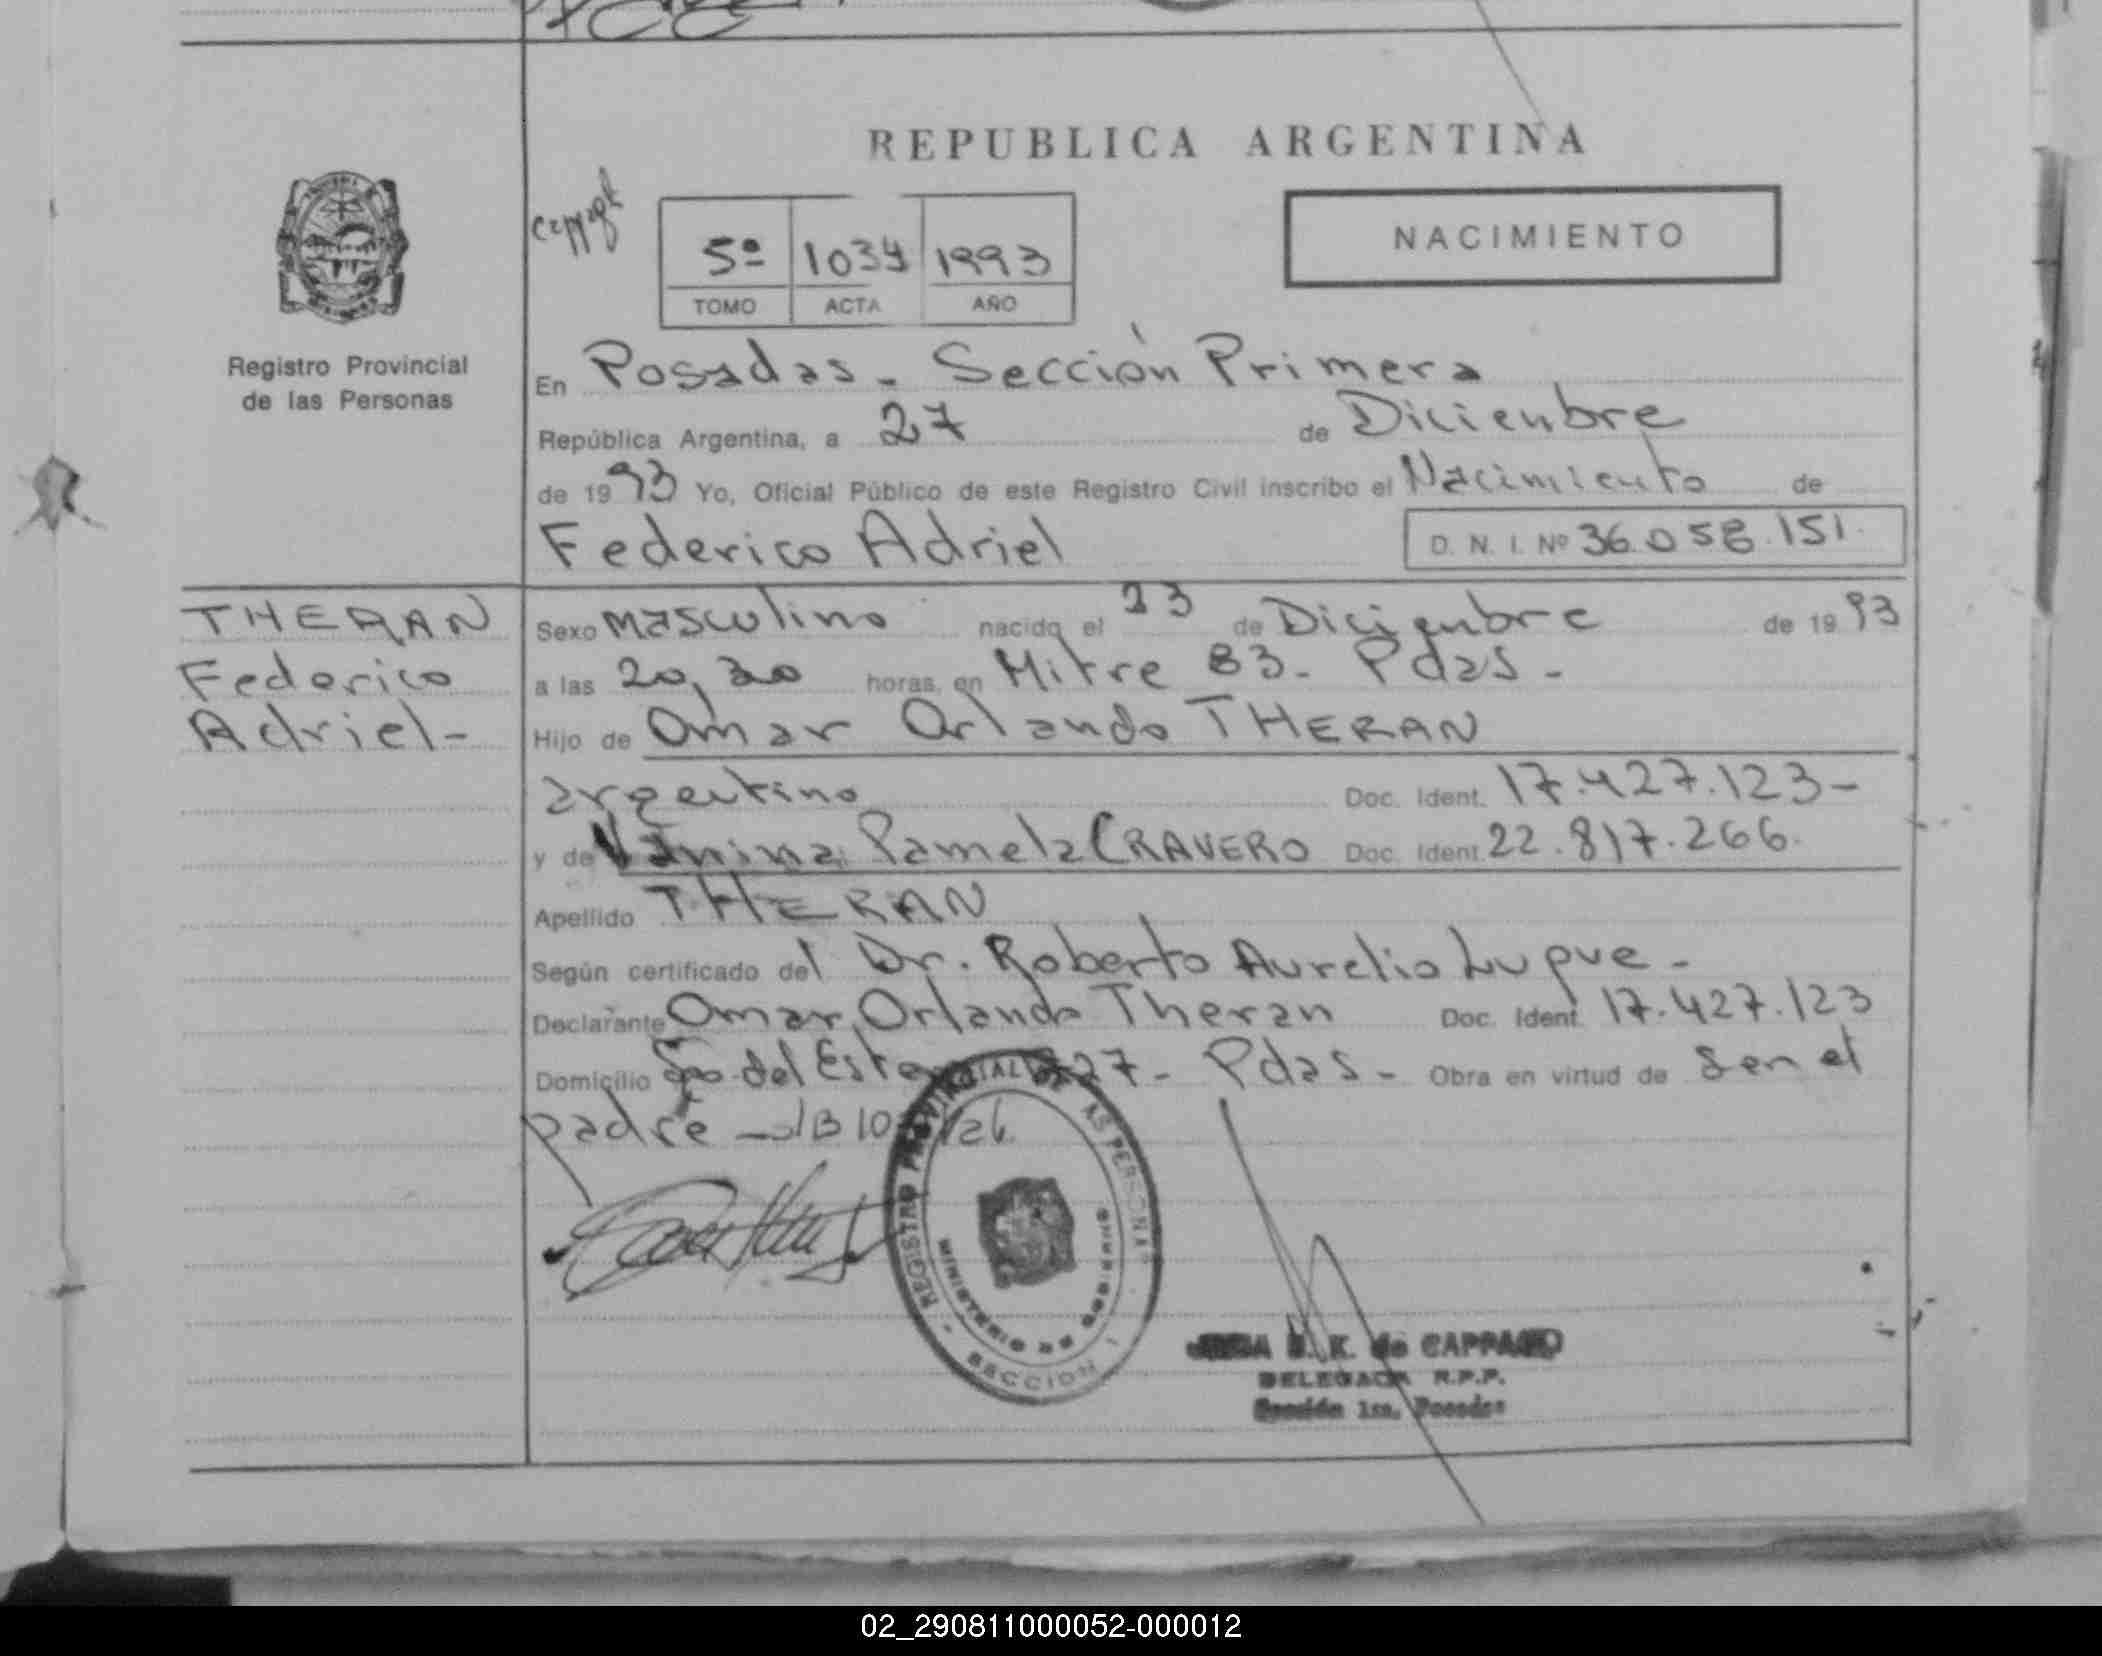 REPUBLICA ARGENTINA
5º 1034 1993
TOMO ACTA AÑO
NACIMIENTO
Registro Provincial
de las Personas
En Posadas - Sección Primera
República Argentina, a 27 de Diciembre
de 1993 Yo, Oficial Público de este Registro Civil inscribo el Nacimiento de
Federico Adriel D. N. I. Nº 36.058.151.
THERAN
Federico
Adriel-
Sexo masculino nacido el 23 de Diciembre de 1993
a las 20,30 horas, en Mitre 83 - Pdas -
Hijo de Omar Orlando THERAN
argentino Doc. Ident. 17.427.123-
y de Vanina Pamela CRAVERO Doc. Ident. 22.817.266.
Apellido THERAN
Según certificado del Dr. Roberto Aurelio Luque -
Declarante Omar Orlando Theran Doc. Ident. 17.427.123
Domicilio Sgo. del Estero 27 - Pdas - Obra en virtud de Ser el
padre
REGISTRO PROVINCIAL DE LAS PERSONAS
MINISTERIO DE GOBIERNO
SECCION 1
K. de CAPPAGLI
DELEGADA R.P.P.
Sección 1ra. Posadas
02_290811000052-000012